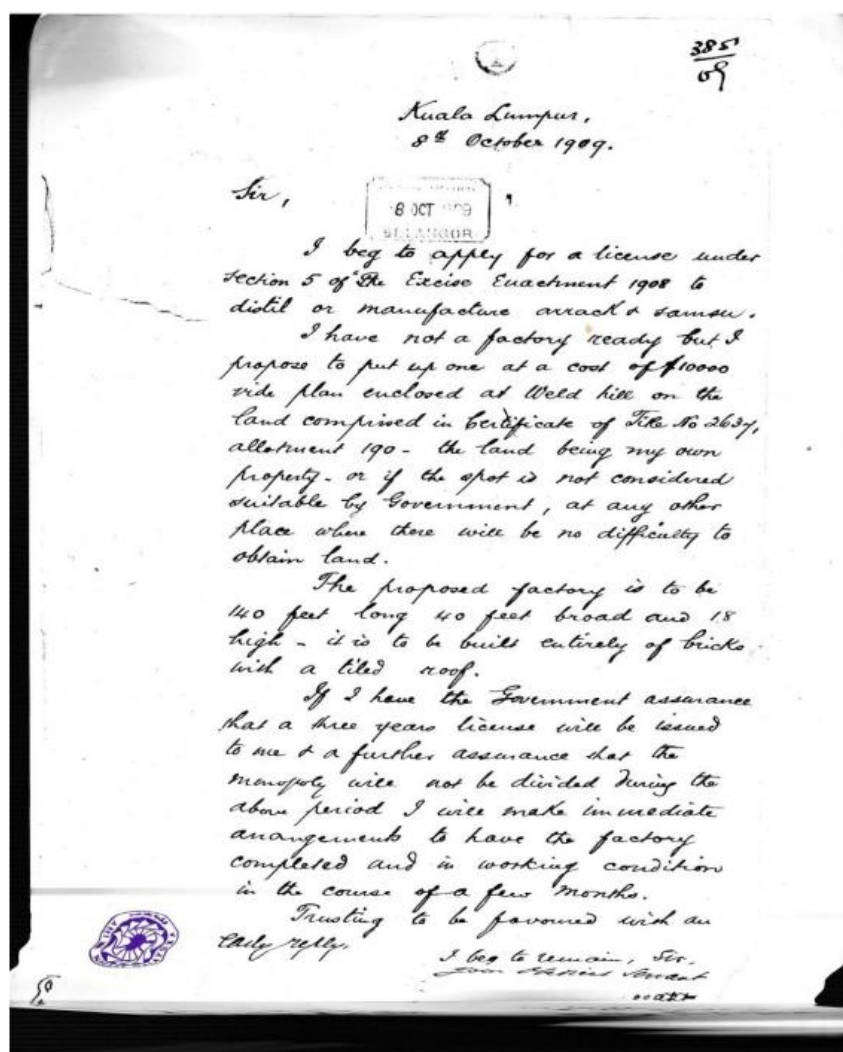 385
09
Kuala Lumpur,
8th October 1909.
Sir,
8 OCT 1909
SELANGOR
I beg to apply for a license under
section 5 of "The Excise Enactment 1908 to
distil or manufacture arrack & samsu.
I have not a factory ready but I
propose to put up one at a cost of $10000
vide plan enclosed at Weld hill on the
land comprised in Certificate of Title No 2637,
allotment 190 - the land being my own
property - or if the spot is not considered
suitable by Government, at any other
place where there will be no difficulty to
obtain land.
The proposed factory is to be
140 feet long 40 feet broad and 18
high - it is to be built entirely of bricks
with a tiled roof.
If I have the Government assurance
that a three years license will be issued
to me & a further assurance that the
monopoly will not be divided during the
above period I will make immediate
arrangements to have the factory
completed and in working condition
in the course of a few months.
Trusting to be favoured with an
early reply.
I beg to remain, Sir,
Your Servant